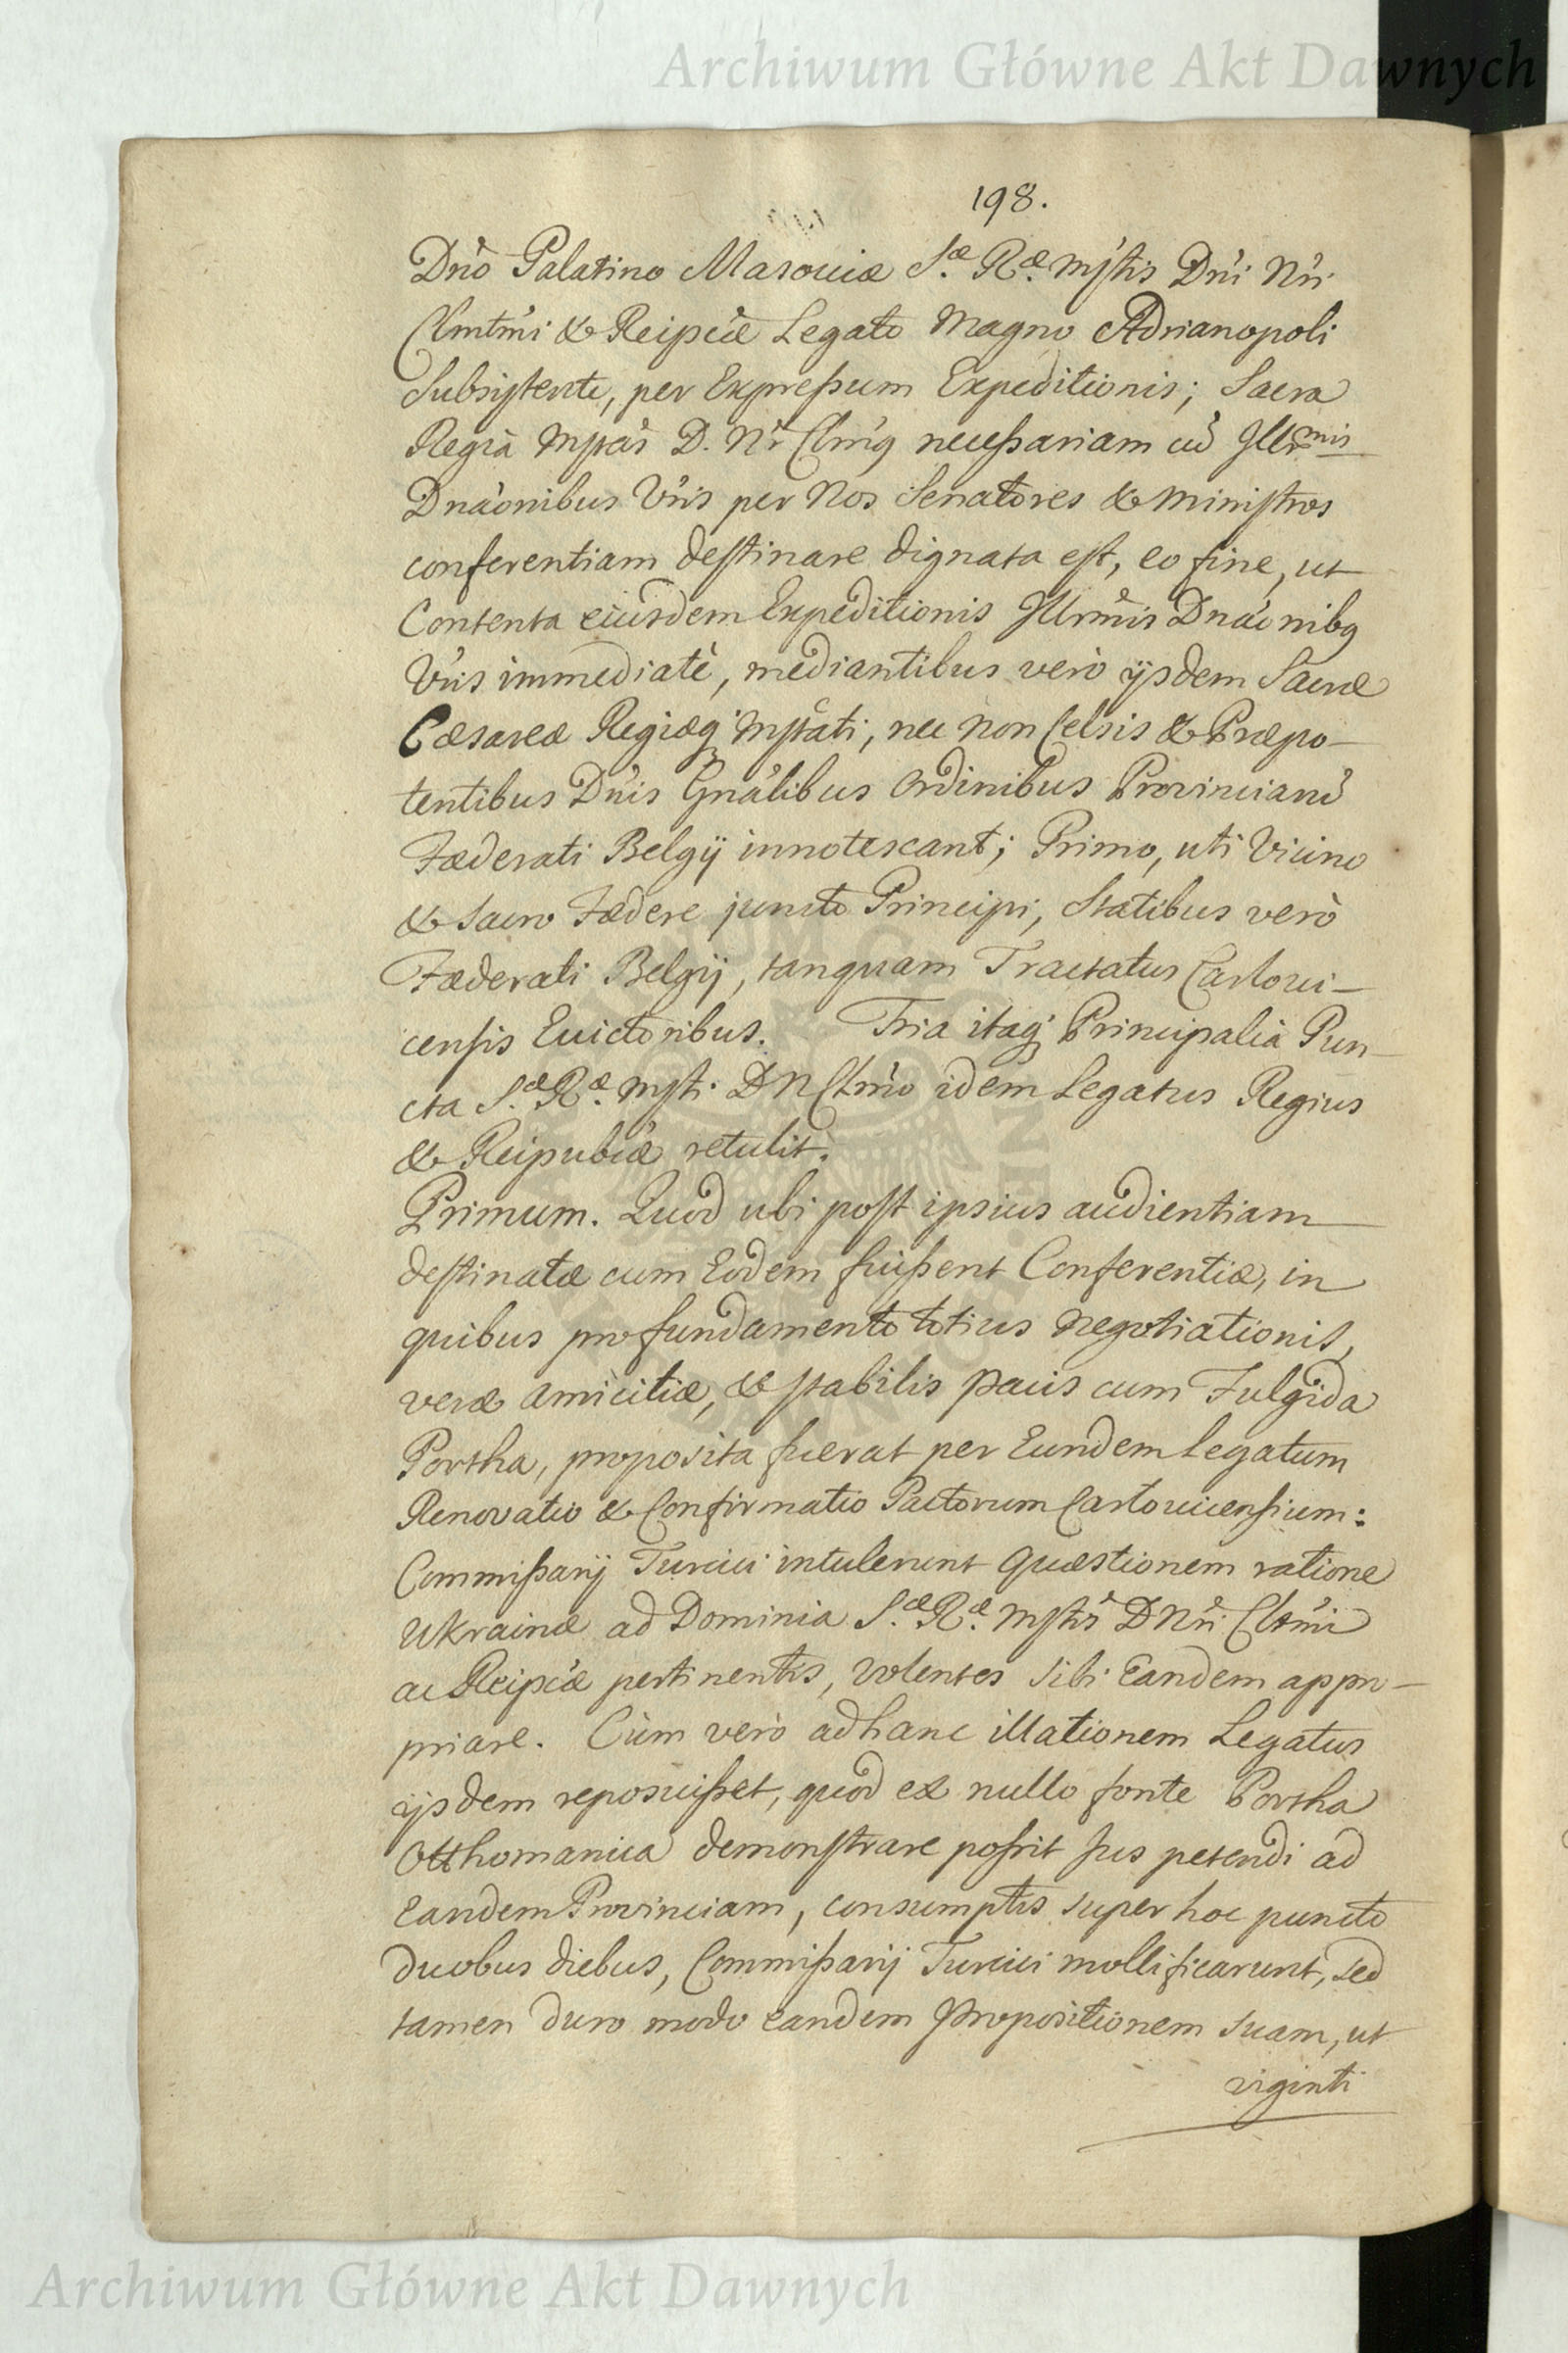 Archiwum Główne Akt Dawnych
198.
Dnō Palatino Masoviæ S.æ R.æ Mſtis Dni Nri
Clmtmi & Reipcæ Legato Magno Adrianopoli
Subsiſtente, per Expreſsum Expeditionis; Sacra
Regia Mſtas D. Nr Clmg neceſsariam cū Illrmis
Dnāonibus Vris per Nos Senatores & Miniſtros
conferentiam deſtinare dignata eſt, eo fine, ut
Contenta eiusdem Expeditionis Illrmis Dnāonibg
Vris immediatè, mediantibus verò ijsdem Sacræ
Cæsareæ Regiæq Mſtati, nec non Celsis & Præpo-
tentibus Dnis Gnālibus Ordinibus Provinciarū
Fæderati Belgij innotescant; Primo, uti Vicino
& Sacro Fædere juncto Principi, Statibus verò
Fæderati Belgij, tanquam Tractatus Carlovi-
censis Evictoribus. Tria itaq Principalia Pun-
cta S.æ R.æ Mſti. DN Clmo idem Legatus Regius
& Reipublcæ retulit.
Primum. Quod ubi poſt ipsius audientiam
deſtinatæ cum Eodem fuiſsent Conferentiæ, in
quibus pro fundamento totius negotiationis,
veræ amicitiæ, & ſtabilis Pacis cum Fulgida
Portha, proposita fuerat per Eundem Legatum
Renovatio & Confirmatio Pactorum Carlovicensium:
Commiſsarij Turcici intulerunt Quæstionem ratione
Ukrainæ ad Dominia S.æ R.æ Mſtis DNri Clmi
ac Reipcæ pertinentis, volentes sibi Eandem appro-
priare. Cùm verò ad hanc illationem Legatus
ijsdem reposuiſset, quod ex nullo fonte Portha
Otthomanica demonſtrare poſsit Jus petendi ad
Eandem Provinciam, consumptis super hoc puncto
duobus diebus, Commiſsarij Turcici mollificarunt, sed
tamen duro modo eandem Propositionem suam, ut
viginti
Archiwum Główne Akt Dawnych